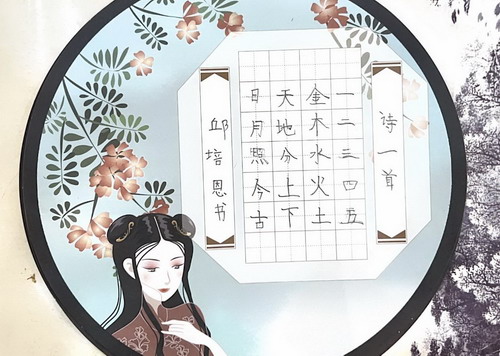 诗一首
一二三四五
金木水火土
天地分上下
日月照今古
邱培恩书